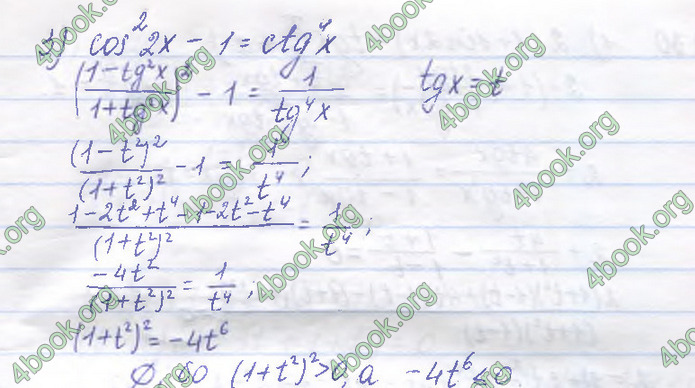 3) cos² 2x − 1 = ctg⁴x
((1 − tg²x)/(1 + tg²x))² − 1 = 1/tg⁴x    tgx = t
(1 − t²)²/(1 + t²)² − 1 = 1/t⁴;
(1 − 2t² + t⁴ − 1 − 2t² − t⁴)/(1 + t²)² = 1/t⁴;
−4t²/(1 + t²)² = 1/t⁴;
(1 + t²)² = −4t⁶
∅ бо (1 + t²)² > 0, а −4t⁶ ≤ 0
4book.org